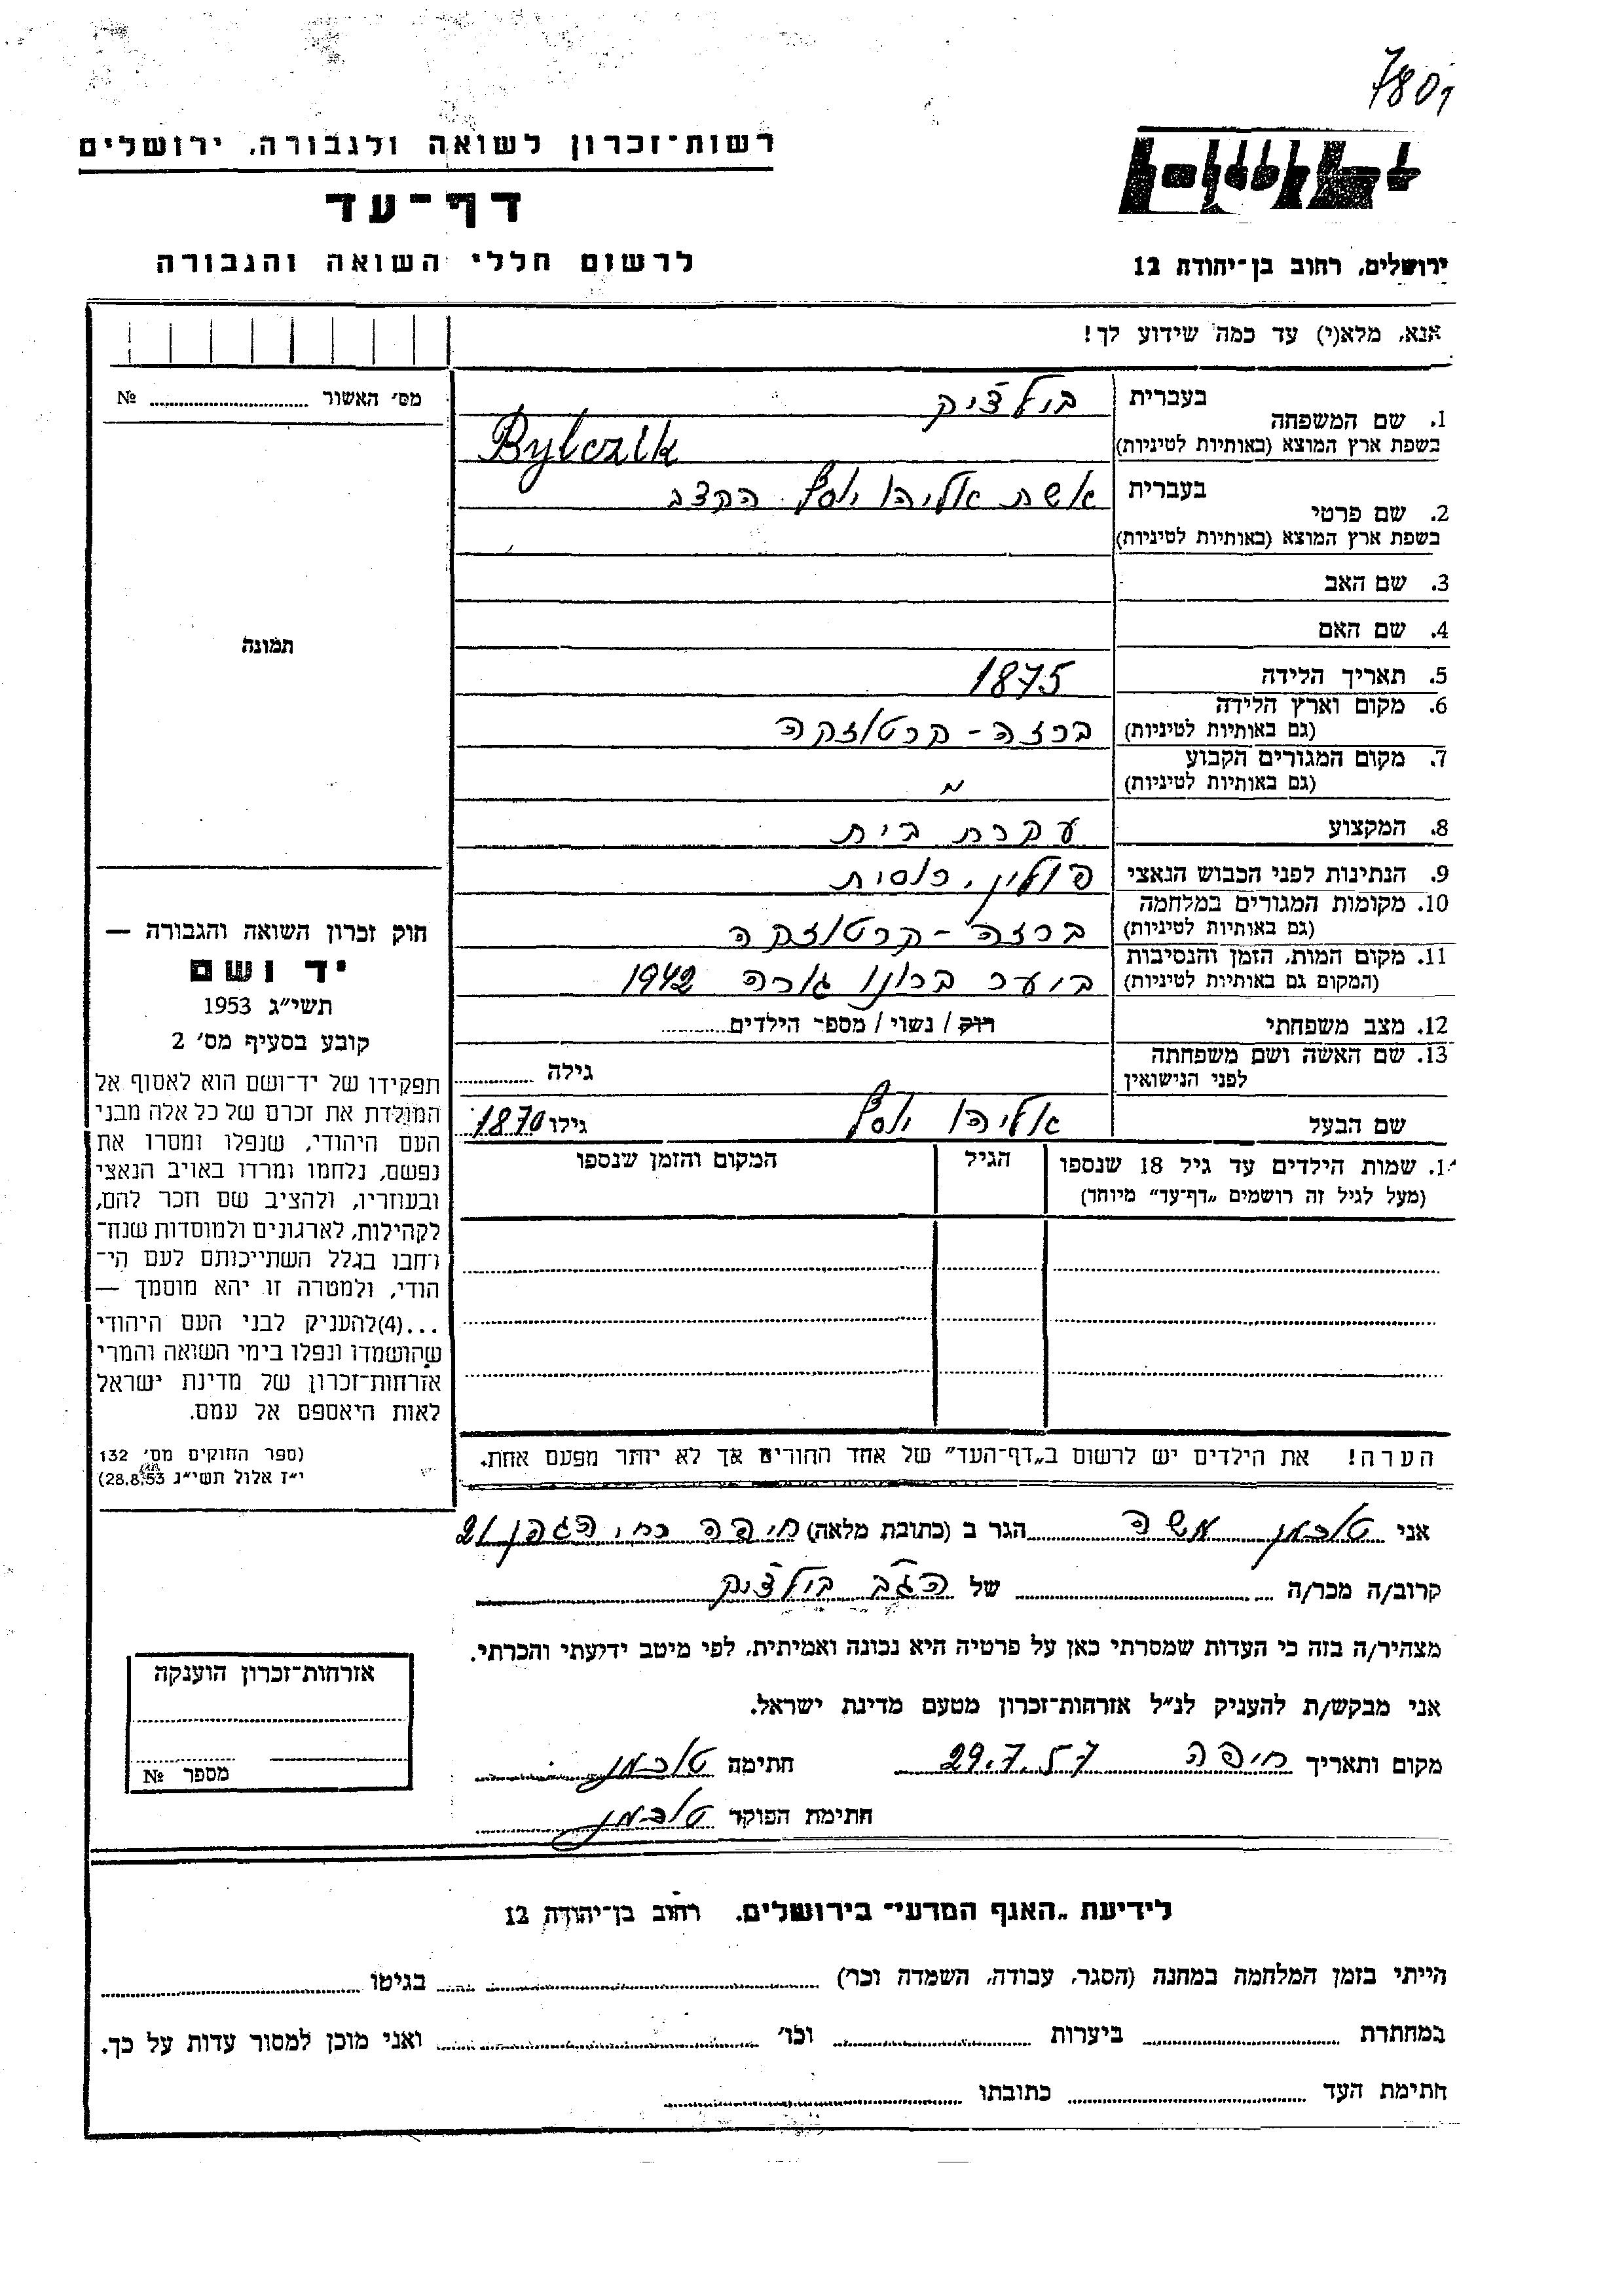 7801
רשות־זכרון לשואה ולגבורה, ירושלים
דף־עד
לרשום חללי השואה והגבורה
ירושלים, רחוב בן־יהודה 12
אנא, מלא(י) עד כמה שידוע לך!
מס׳ האשור № 
1. שם המשפחה
בעברית בולצ׳יק
בשפת ארץ המוצא (באותיות לטיניות) Bylczik
2. שם פרטי
בעברית אשת אליהו יוסף הקצב
בשפת ארץ המוצא (באותיות לטיניות)
3. שם האב
4. שם האם
5. תאריך הלידה 1875
6. מקום וארץ הלידה
(גם באותיות לטיניות) ברזה - קרטוזקה
7. מקום המגורים הקבוע
(גם באותיות לטיניות) "
8. המקצוע עקרת בית
9. הנתינות לפני הכבוש הנאצי פולין,
10. מקומות המגורים במלחמה
(גם באותיות לטיניות) ברזה - קרטוזקה
11. מקום המות, הזמן והנסיבות
(המקום גם באותיות לטיניות) ביער ברונו גורה 1942
12. מצב משפחתי רוק / נשוי / מספר הילדים
13. שם האשה ושם משפחתה
לפני הנישואין גילה
שם הבעל אליהו יוסף גילו 1870
שמות הילדים עד גיל 18 שנספו
(מעל לגיל זה רושמים „דף־עד” מיוחד)
הגיל
המקום והזמן שנספו
הערה! את הילדים יש לרשום ב„דף־העד” של אחד ההורים אך לא יותר מפעם אחת.
תמונה
חוק זכרון השואה והגבורה —
יד ושם
תשי״ג 1953
קובע בסעיף מס׳ 2
תפקידו של יד־ושם הוא לאסוף אל
המולדת את זכרם של כל אלה מבני
העם היהודי, שנפלו ומסרו את
נפשם, נלחמו ומרדו באויב הנאצי
ובעוזריו, ולהציב שם וזכר להם,
לקהילות, לארגונים ולמוסדות שנח־
רחבו בגלל השתייכותם לעם הי־
הודי, ולמטרה זו יהא מוסמך —
...(4)להעניק לבני העם היהודי
שהושמדו ונפלו בימי השואה והמרי
אזרחות־זכרון של מדינת ישראל
לאות היאספם אל עמם.
(ספר החוקים מס׳ 132
י״ז אלול תשי״ג 28.8.53)
אני טוכמן משה הגר ב (כתובת מלאה) חיפה רח׳ הגפן 21
קרוב/ה מכר/ה של הגב׳ בולצ׳יק
מצהיר/ה בזה כי העדות שמסרתי כאן על פרטיה היא נכונה ואמיתית, לפי מיטב ידיעתי והכרתי.
אני מבקש/ת להעניק לנ״ל אזרחות־זכרון מטעם מדינת ישראל.
מקום ותאריך חיפה 29.7.57 חתימה טוכמן
חתימת הפוקד טוכמן
אזרחות־זכרון הוענקה
מספר №
לידיעת „האגף המדעי״ בירושלים, רחוב בן־יהודה 12
הייתי בזמן המלחמה במחנה (הסגר, עבודה, השמדה וכר׳) בגיטו
במחתרת ביערות וכו׳ ואני מוכן למסור עדות על כך.
חתימת העד כתובתו